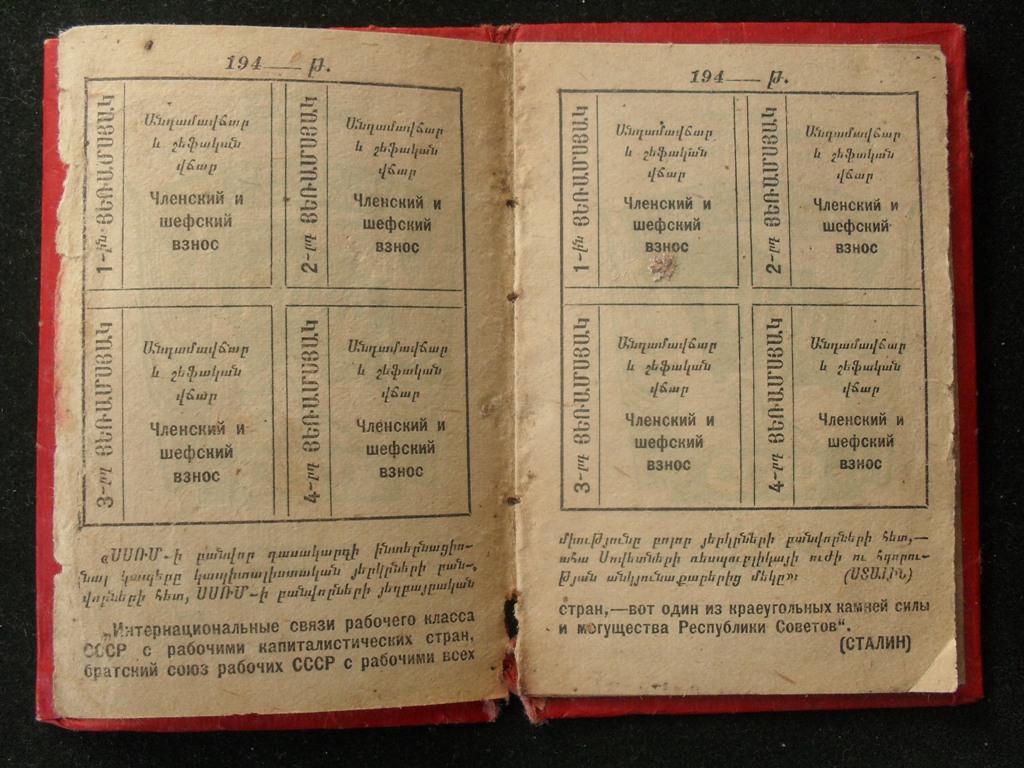 194 — թ.
1-ին ՅԵՌԱՄՍՅԱԿ
Անդամավճար
և շեֆական
վճար
Членский и
шефский
взнос
2-րդ ՅԵՌԱՄՍՅԱԿ
Անդամավճար
և շեֆական
վճար
Членский и
шефский
взнос
3-րդ ՅԵՌԱՄՍՅԱԿ
Անդամավճար
և շեֆական
վճար
Членский и
шефский
взнос
4-րդ ՅԵՌԱՄՍՅԱԿ
Անդամավճար
և շեֆական
վճար
Членский и
шефский
взнос
«ՍՍՌՄ-ի բանվոր դասակարգի ինտերնացիո-
նալ կապերը կապիտալիստական յերկրների բան-
վորների հետ, ՍՍՌՄ-ի բանվորների յեղբայրական
„Интернациональные связи рабочего класса
СССР с рабочими капиталистических стран,
братский союз рабочих СССР с рабочими всех
194 — թ.
1-ին ՅԵՌԱՄՍՅԱԿ
Անդամավճար
և շեֆական
վճար
Членский и
шефский
взнос
2-րդ ՅԵՌԱՄՍՅԱԿ
Անդամավճար
և շեֆական
վճար
Членский и
шефский
взнос
3-րդ ՅԵՌԱՄՍՅԱԿ
Անդամավճար
և շեֆական
վճար
Членский и
шефский
взнос
4-րդ ՅԵՌԱՄՍՅԱԿ
Անդամավճար
և շեֆական
վճար
Членский и
шефский
взнос
միությունը բոլոր յերկրների բանվորների հետ,—
ահա Սովետների ռեսպուբլիկայի ուժի ու հզորու-
թյան անկյունաքարերից մեկը»։ (ՍՏԱԼԻՆ)
стран,—вот один из краеугольных камней силы
и могущества Республики Советов“.
(СТАЛИН)